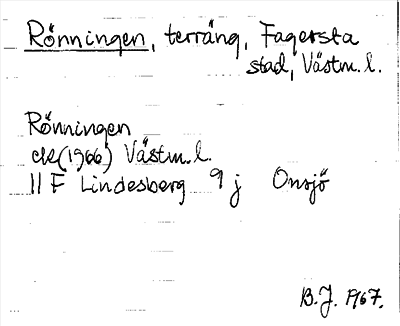 Rönningen, terräng, Fagersta
stad, Västm. l.
Rönningen
ek (1966) Västm. l.
11 F Lindesberg 9 j Onsjö
B.J. 1967.